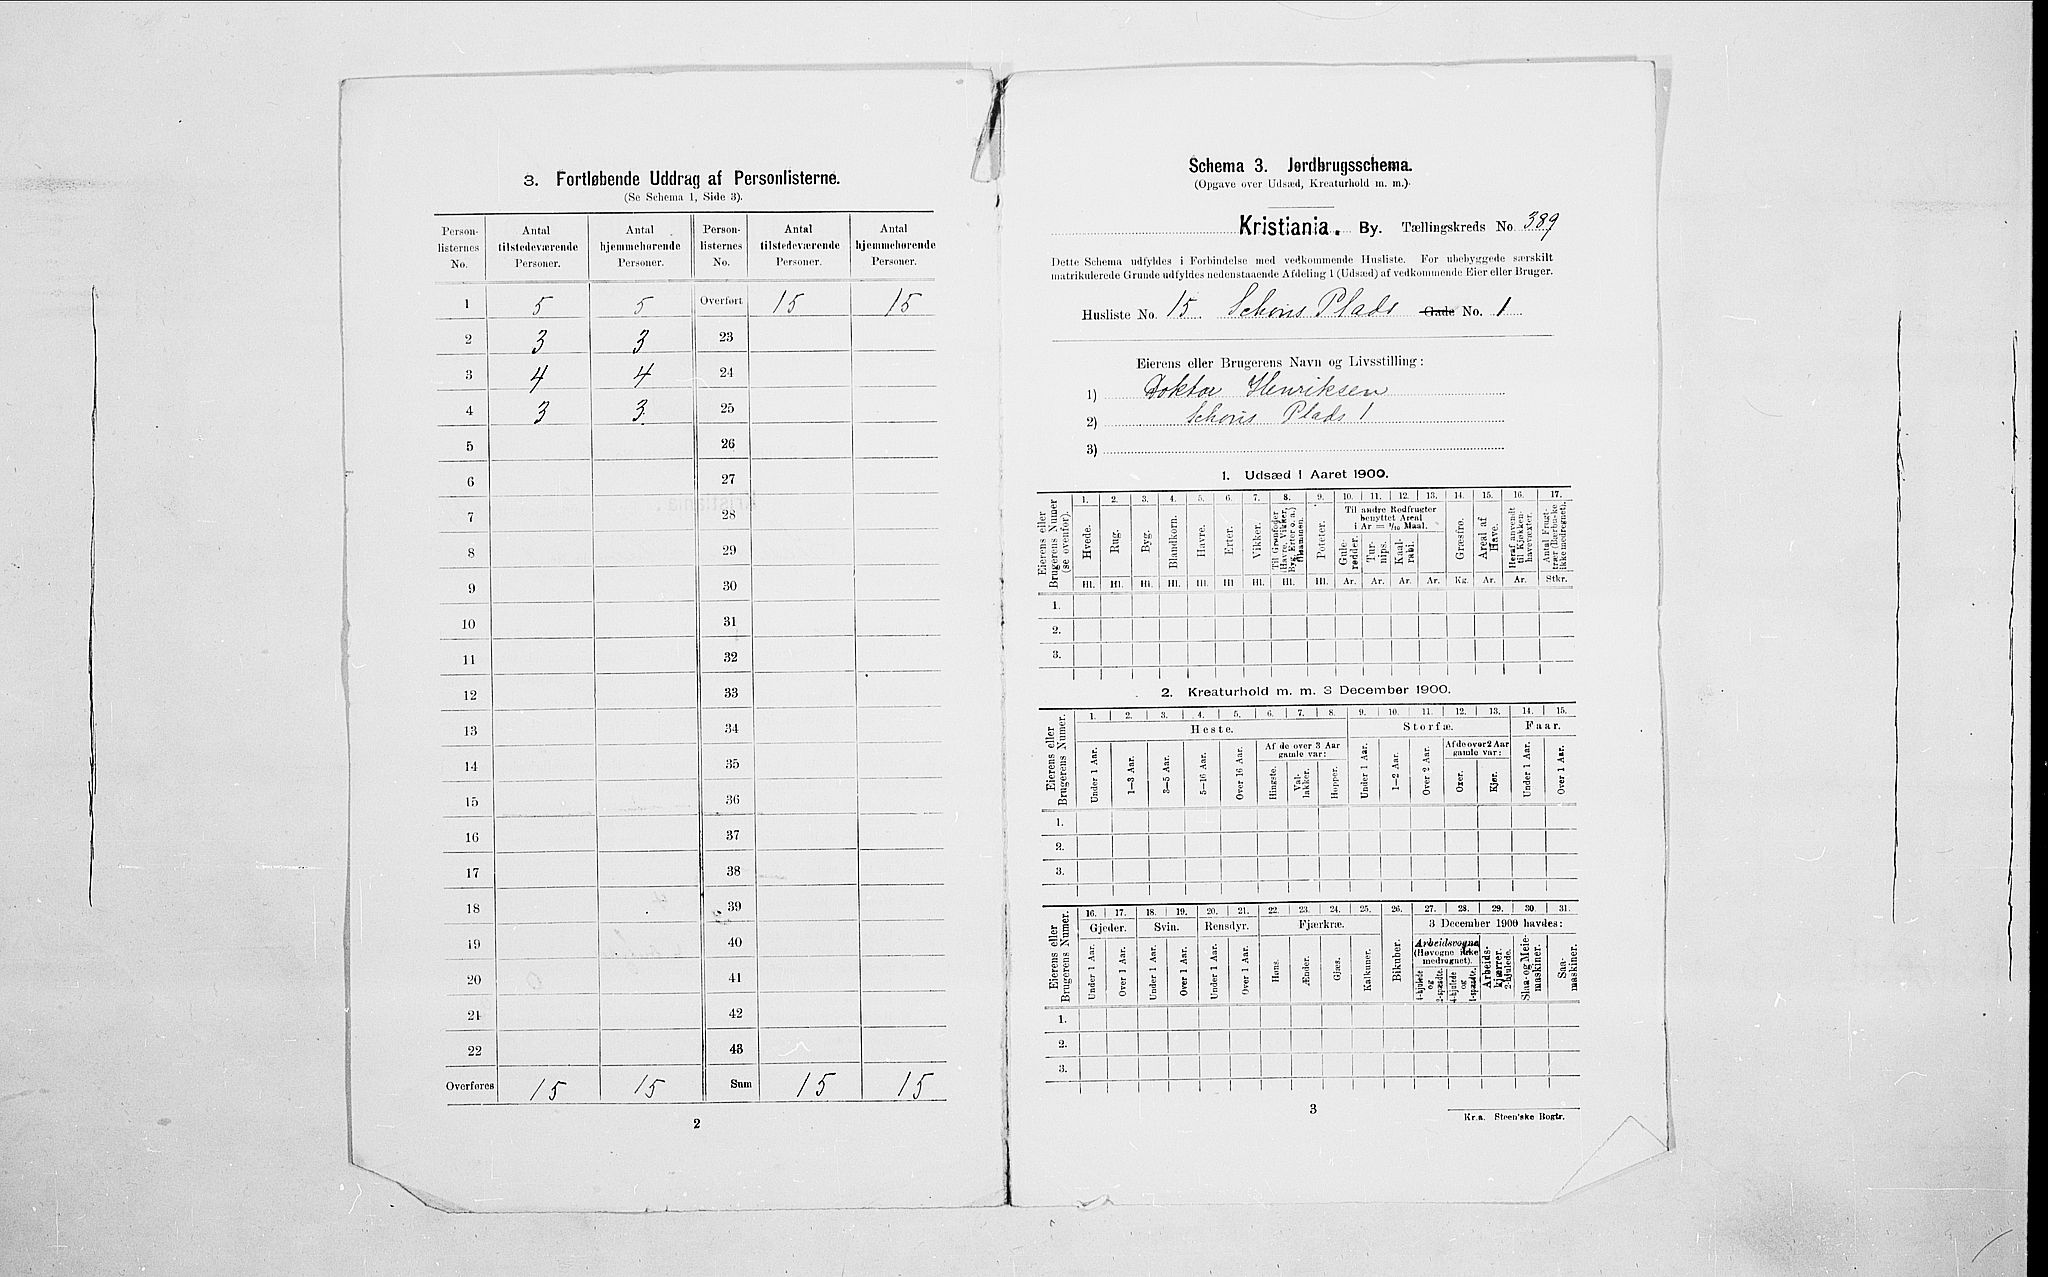 3. Fortløbende Uddrag af Personlisterne.
(Se Schema 1, Side 3).
Person-listernes No. Antal tilstedeværende Personer. Antal hjemmehørende Personer. Person-listernes No. Antal tilstedeværende Personer. Antal hjemmehørende Personer.
1 5 5 Overført 15 15
2 3 3 23
3 4 4 24
4 3 3 25
5 26
6 27
7 28
8 29
9 30
10 31
11 32
12 33
13 34
14 35
15 36
16 37
17 38
18 39
19 40
20 41
21 42
22 43
Overføres 15 15 Sum 15 15
2
Schema 3. Jordbrugsschema.
(Opgave over Udsæd, Kreaturhold m. m.).
Kristiania. By. Tællingskreds No. 389
Dette Schema udfyldes i Forbindelse med vedkommende Husliste. For ubebyggede særskilt
matrikulerede Grunde udfyldes nedenstaaende Afdeling 1 (Udsæd) af vedkommende Eier eller Bruger.
Husliste No. 15. Schous Plads Gade No. 1
Eierens eller Brugerens Navn og Livsstilling:
1) Doktor Henriksen
2) Schous Plads 1
3)
1. Udsæd i Aaret 1900.
Eierens eller Brugerens Numer (se ovenfor).
1. 2. 3. 4. 5. 6. 7. 8. 9. 10. 11. 12. 13. 14. 15. 16. 17.
Hvede. Rug. Byg. Blandkorn. Havre. Erter. Vikker. Til Grønfoder (Havre, Vikker, Byg, Erter o. a.) tilsammen. Poteter.
Til andre Rodfrugter benyttet Areal i Ar = 1/10 Maal.
Gule-rødder. Tur-nips. Kaal-rabi. Græsfrø. Areal af Have. Heraf anvendt til Kjøkken-havevæxter. Antal Frugt-trær (Bærbuske ikke medregnet).
Hl. Hl. Hl. Hl. Hl. Hl. Hl. Hl. Hl. Ar. Ar. Ar. Ar. Kg. Ar. Ar. Stkr.
1.
2.
3.
2. Kreaturhold m. m. 3 December 1900.
Eierens eller Brugerens Numer.
1. 2. 3. 4. 5. 6. 7. 8. 9. 10. 11. 12. 13. 14. 15.
Heste. Storfæ. Faar.
Under 1 Aar. 1—3 Aar. 3—5 Aar. 5—16 Aar. Over 16 Aar. Af de over 3 Aar gamle var: Hingste. Val-lakker. Hopper. Under 1 Aar. 1—2 Aar. Over 2 Aar. Af de over 2 Aar gamle var: Oxer. Kjør. Under 1 Aar. Over 1 Aar.
1.
2.
3.
Eierens eller Brugerens Numer.
16. 17. 18. 19. 20. 21. 22. 23. 24. 25. 26. 27. 28. 29. 30. 31.
Gjeder. Svin. Rensdyr. Fjærkræ. 3 December 1900 havdes:
Under 1 Aar. Over 1 Aar. Under 1 Aar. Over 1 Aar. Under 1 Aar. Over 1 Aar. Høns. Ænder. Gjæs. Kalkuner. Bikuber. Arbeidsvogne (Høvogne ikke medregnet). 4-hjulede og 2-spændte. 4-hjulede og 1-spændte. Arbeids-kjærrer. 2-hjulede. Slaa- og Meie-maskiner. Saa-maskiner.
1.
2.
3.
3
Kr.a. Steen'ske Bogtr.